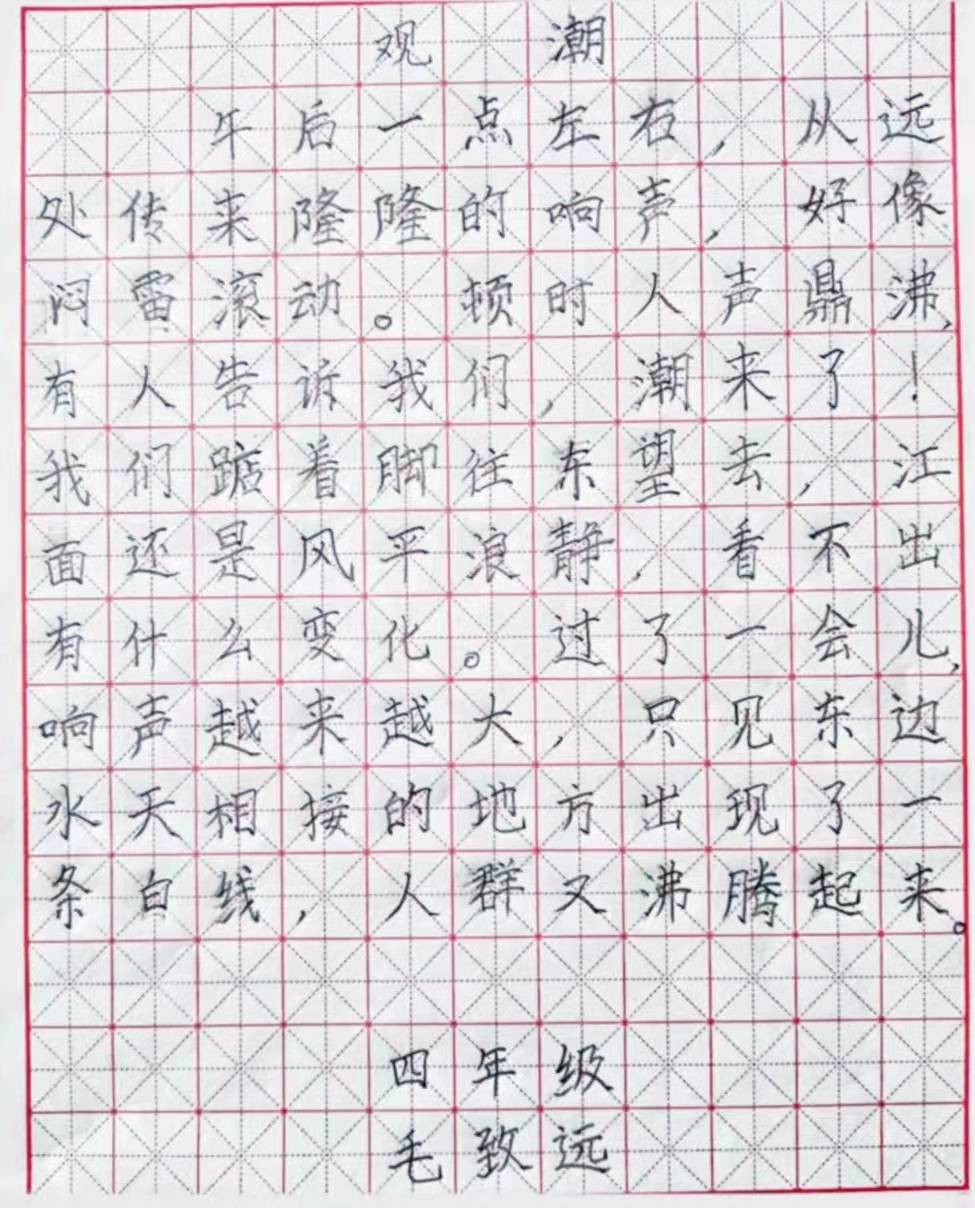 观 潮
午后一点左右，从远
处传来隆隆的响声，好像
闷雷滚动。顿时人声鼎沸，
有人告诉我们，潮来了！
我们踮着脚往东望去，江
面还是风平浪静，看不出
有什么变化。过了一会儿，
响声越来越大，只见东边
水天相接的地方出现了一
条白线，人群又沸腾起来。
四年级
毛致远